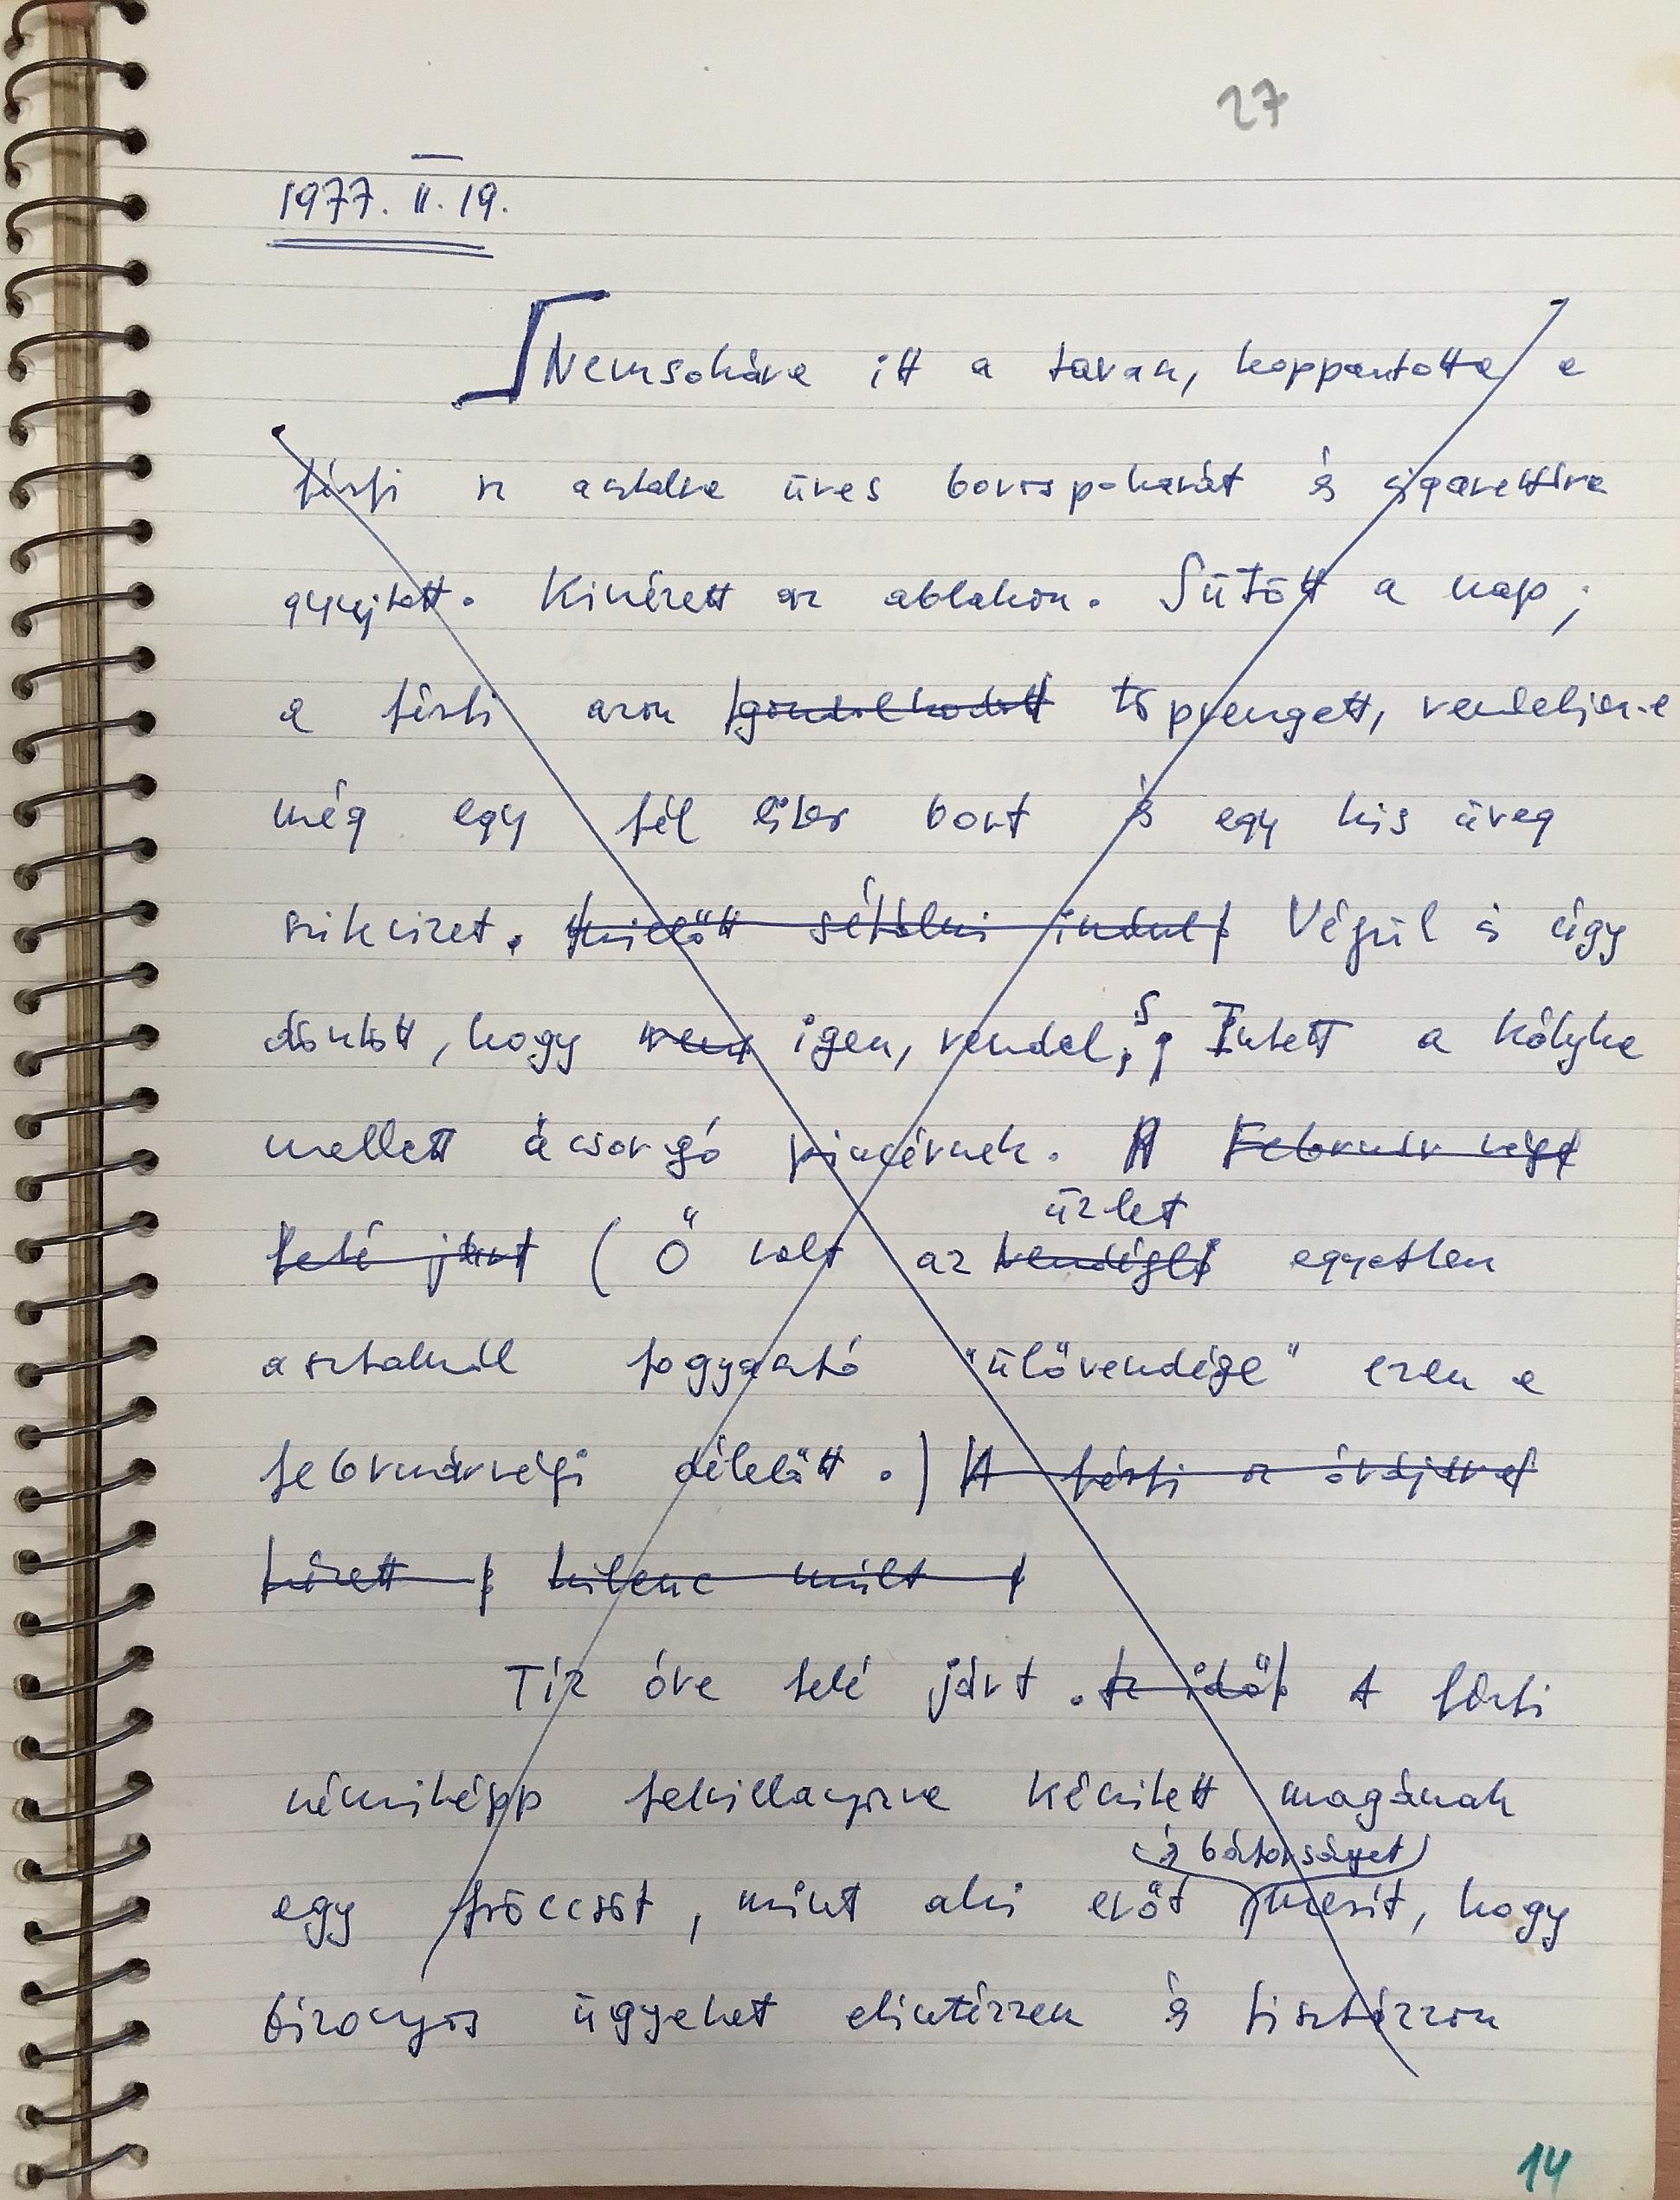 27
1977. II. 19.
Nemsokára itt a tavasz, koppantotta a
férfi az asztalra üres borospoharát és cigarettára
gyujtott. Kinézett az ablakon. Sütött a nap;
a férfi azon gondolkodott töprengett, rendeljen-e
még egy fél liter bort és egy kis üveg
szikvizet. mielőtt sétálni indul Végül is úgy
döntött, hogy nem igen, rendel; s Intett a kályha
mellett ácsorgó pincérnek. A Február vége
felé járt ( Ő volt az vendéglő egyetlen
üzlet
asztalnál fogyasztó "ülővendége" ezen a
februárvégi délelőtt.) A férfi az órájára
nézett kilenc múlt
Tíz óra felé járt. az idő A férfi
némiképp felvillanyozva készített magának
és bátorságot
egy fröccsöt, mint aki erőt merít, hogy
bizonyos ügyeket elintézzen és tisztázzon
14